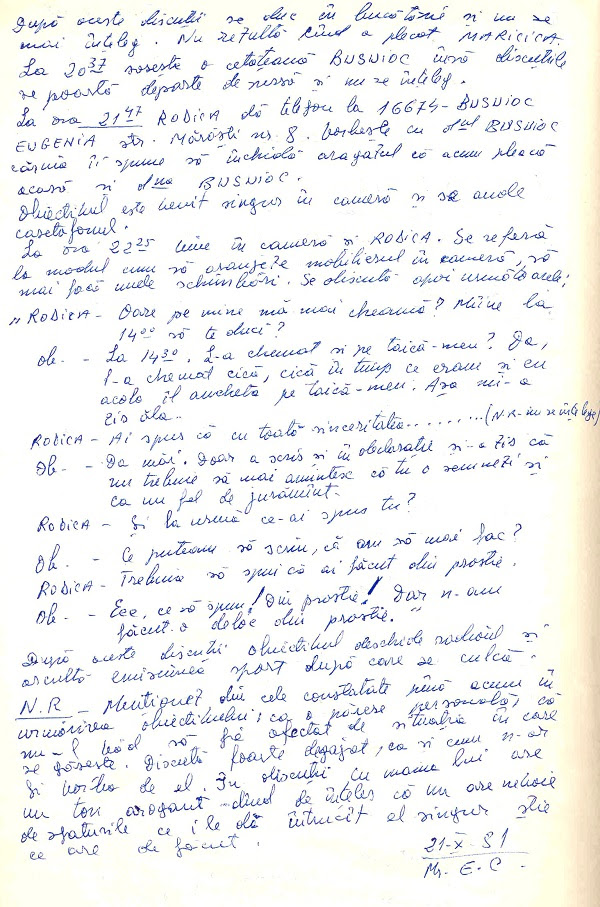 După aceste discuții se duc în bucătărie și nu se
mai înțeleg. Nu rezultă cînd a plecat MARICICA.
La 20³⁷ sosește o cetățeană BUSUIOC însă discuțiile
se poartă departe de sursă și nu se înțeleg.
La ora 21⁴⁷ RODICA dă telefon la 16674 - BUSUIOC
EUGENIA str. Mărăști nr. 8. Vorbește cu dnul BUSUIOC
căruia îi spune să închidă aragazul că acum pleacă
acasă și dna BUSUIOC.
Obiectivul este venit singur în cameră și se aude
casetofonul.
La ora 22²⁵ vine în cameră și RODICA. Se referă
la modul cum să aranjeze mobilierul în cameră, să
mai facă unele schimbări. Se discută apoi următoarele:
„RODICA - Oare pe mine mă mai cheamă? Mîine la
14⁰⁰ să te duci?
Ob. - La 14³⁰. L-a chemat și pe taică-meu? Da,
l-a chemat cică, cică în timp ce eram și eu
acolo îl ancheta pe taică-meu. Așa mi-a
zis ăla.
RODICA - Ai spus că cu toată sinceritatea........(NR-nu se înțelege)
Ob. - Da măi. Doar a scris și în declarație și-a zis că
nu trebuie să mai amintesc că tu o semnezi și
ca un fel de jurămînt.
RODICA - Și la urmă ce-ai spus tu?
Ob. - Ce puteam să scriu, că am să mai fac?
RODICA - Trebuia să spui că ai făcut din prostie.
Ob. - Eee, ce să spun! Din prostie! Dar n-am
făcut-o deloc din prostie."
După aceste discuții obiectivul deschide radioul și
ascultă emisiunea sport după care se culcă.
N.R - Menționez, din cele constatate pînă acum în
urmărirea obiectivului, ca o părere personală, că
nu-l văd să fie afectat de situația în care
se găsește. Discută foarte degajat, ca și cum n-ar
fi vorba de el. În discuții cu mama lui are
un ton arogant dînd de înțeles că nu are nevoie
de sfaturile ce i le dă întrucît el singur știe
ce are de făcut.
21-X-81
Mr. E.C.